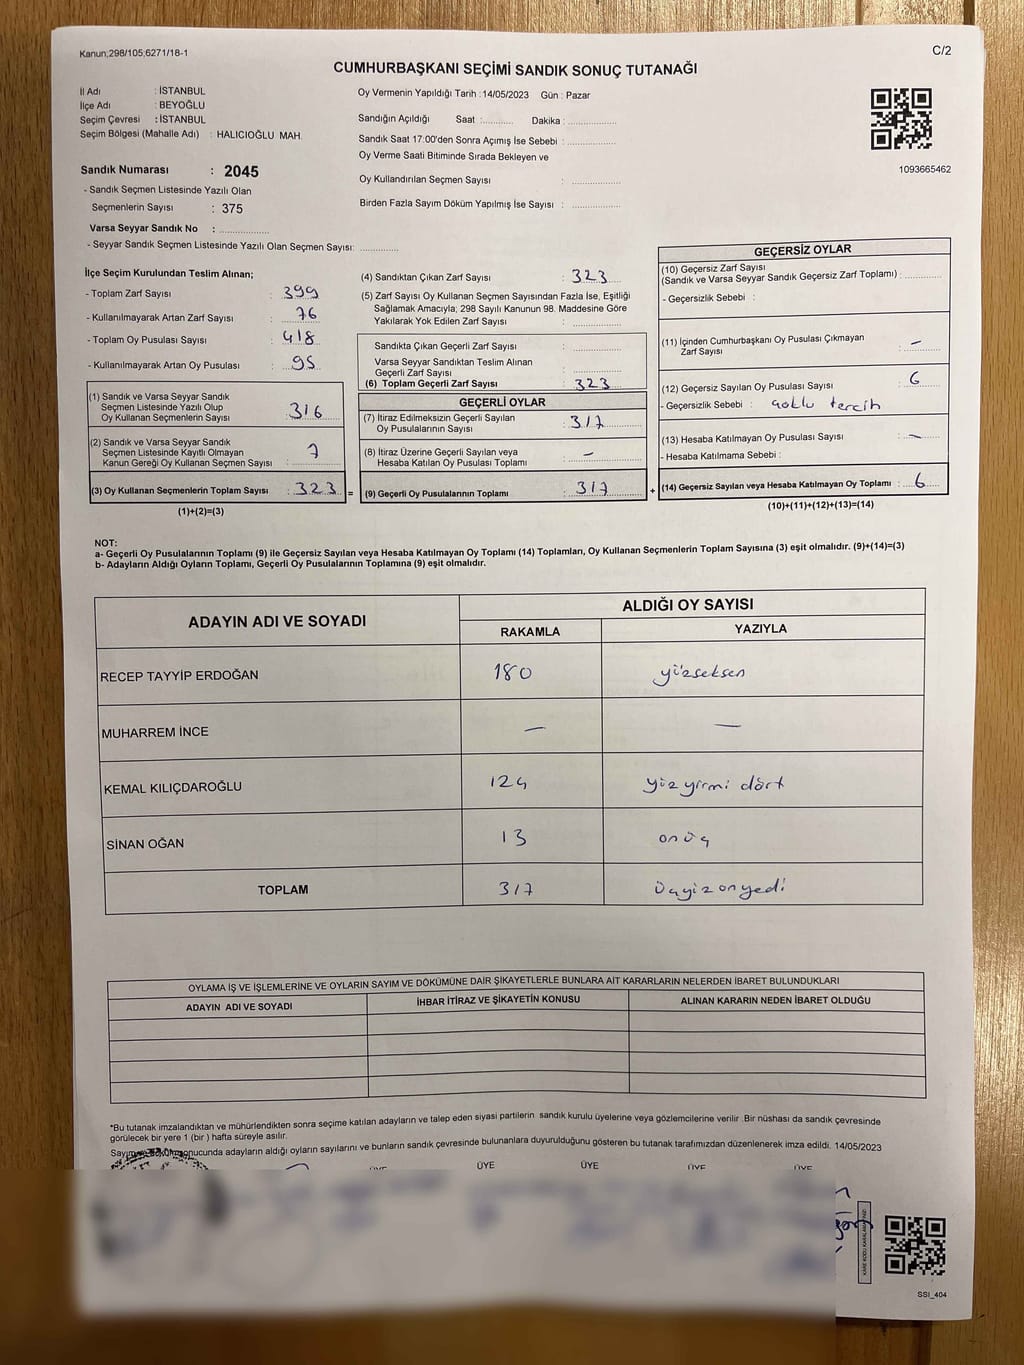 Kanun;298/105;6271/18-1
C/2
CUMHURBAŞKANI SEÇİMİ SANDIK SONUÇ TUTANAĞI
İl Adı : İSTANBUL
İlçe Adı : BEYOĞLU
Seçim Çevresi : İSTANBUL
Seçim Bölgesi (Mahalle Adı) : HALICIOĞLU MAH.
Sandık Numarası : 2045
- Sandık Seçmen Listesinde Yazılı Olan
Seçmenlerin Sayısı : 375
Varsa Seyyar Sandık No : ..............
- Seyyar Sandık Seçmen Listesinde Yazılı Olan Seçmen Sayısı: ............
Oy Vermenin Yapıldığı Tarih :14/05/2023 Gün : Pazar
Sandığın Açıldığı Saat :.......... Dakika :...............
Sandık Saat 17:00'den Sonra Açımış İse Sebebi : ...............
Oy Verme Saati Bitiminde Sırada Bekleyen ve
Oy Kullandırılan Seçmen Sayısı : ...............
Birden Fazla Sayım Döküm Yapılmış İse Sayısı : ...............
1093665462
İlçe Seçim Kurulundan Teslim Alınan;
- Toplam Zarf Sayısı : 399
- Kullanılmayarak Artan Zarf Sayısı : 76
- Toplam Oy Pusulası Sayısı : 418
- Kullanılmayarak Artan Oy Pusulası : 95
(1) Sandık ve Varsa Seyyar Sandık
Seçmen Listesinde Yazılı Olup
Oy Kullanan Seçmenlerin Sayısı : 316
(2) Sandık ve Varsa Seyyar Sandık
Seçmen Listesinde Kayıtlı Olmayan
Kanun Gereği Oy Kullanan Seçmen Sayısı : 7
(3) Oy Kullanan Seçmenlerin Toplam Sayısı : 323 =
(1)+(2)=(3)
(4) Sandıktan Çıkan Zarf Sayısı : 323
(5) Zarf Sayısı Oy Kullanan Seçmen Sayısından Fazla İse, Eşitliği
Sağlamak Amacıyla; 298 Sayılı Kanunun 98. Maddesine Göre
Yakılarak Yok Edilen Zarf Sayısı : ...............
Sandıkta Çıkan Geçerli Zarf Sayısı : ...............
Varsa Seyyar Sandıktan Teslim Alınan
Geçerli Zarf Sayısı : ...............
(6) Toplam Geçerli Zarf Sayısı : 323
GEÇERLİ OYLAR
(7) İtiraz Edilmeksizin Geçerli Sayılan
Oy Pusulalarının Sayısı : 317
(8) İtiraz Üzerine Geçerli Sayılan veya
Hesaba Katılan Oy Pusulası Toplamı : –
(9) Geçerli Oy Pusulalarının Toplamı : 317 +
GEÇERSİZ OYLAR
(10) Geçersiz Zarf Sayısı
(Sandık ve Varsa Seyyar Sandık Geçersiz Zarf Toplamı) : ............
- Geçersizlik Sebebi :
(11) İçinden Cumhurbaşkanı Oy Pusulası Çıkmayan
Zarf Sayısı : –
(12) Geçersiz Sayılan Oy Pusulası Sayısı : 6
- Geçersizlik Sebebi : çoklu tercih
(13) Hesaba Katılmayan Oy Pusulası Sayısı : –
- Hesaba Katılmama Sebebi :
(14) Geçersiz Sayılan veya Hesaba Katılmayan Oy Toplamı : 6
(10)+(11)+(12)+(13)=(14)
NOT:
a- Geçerli Oy Pusulalarının Toplamı (9) ile Geçersiz Sayılan veya Hesaba Katılmayan Oy Toplamı (14) Toplamları, Oy Kullanan Seçmenlerin Toplam Sayısına (3) eşit olmalıdır. (9)+(14)=(3)
b- Adayların Aldığı Oyların Toplamı, Geçerli Oy Pusulalarının Toplamına (9) eşit olmalıdır.
ADAYIN ADI VE SOYADI
ALDIĞI OY SAYISI
RAKAMLA YAZIYLA
RECEP TAYYİP ERDOĞAN 180 yüzseksen
MUHARREM İNCE – –
KEMAL KILIÇDAROĞLU 124 yüz yirmi dört
SİNAN OĞAN 13 onüç
TOPLAM 317 üçyüz onyedi
OYLAMA İŞ VE İŞLEMLERİNE VE OYLARIN SAYIM VE DÖKÜMÜNE DAİR ŞİKAYETLERLE BUNLARA AİT KARARLARIN NELERDEN İBARET BULUNDUKLARI
ADAYIN ADI VE SOYADI İHBAR İTİRAZ VE ŞİKAYETİN KONUSU ALINAN KARARIN NEDEN İBARET OLDUĞU
*Bu tutanak imzalandıktan ve mühürlendikten sonra seçime katılan adayların ve talep eden siyasi partilerin sandık kurulu üyelerine veya gözlemcilerine verilir .Bir nüshası da sandık çevresinde
görülecek bir yere 1 (bir ) hafta süreyle asılır.
Sayım döküm sonucunda adayların aldığı oyların sayılarını ve bunların sandık çevresinde bulunanlara duyurulduğunu gösteren bu tutanak tarafımızdan düzenlenerek imza edildi. 14/05/2023
ÜYE ÜYE ÜYE ÜYE ÜYE
SSI_404